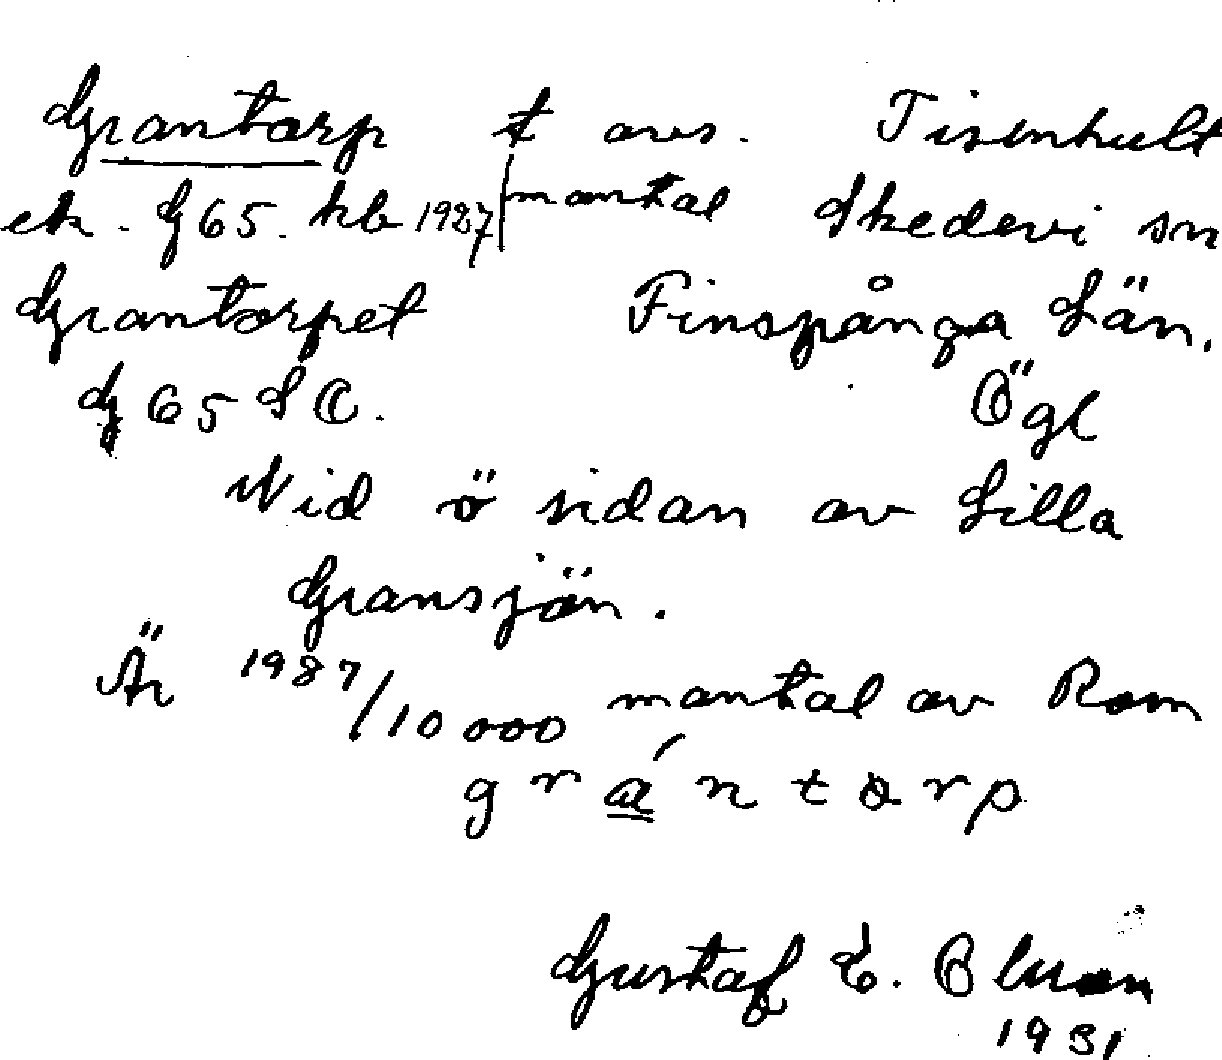 Grantorp t avs. Tisenhult
ek. G65. hb 1987 mantal Skedevi sn
Grantorpet Finspånga Län.
G65 SO. Ögl
Vid ö sidan av Lilla
Gransjön.
Är 1987/10000 mantal av Rom
grántorp
Gustaf E.
1931